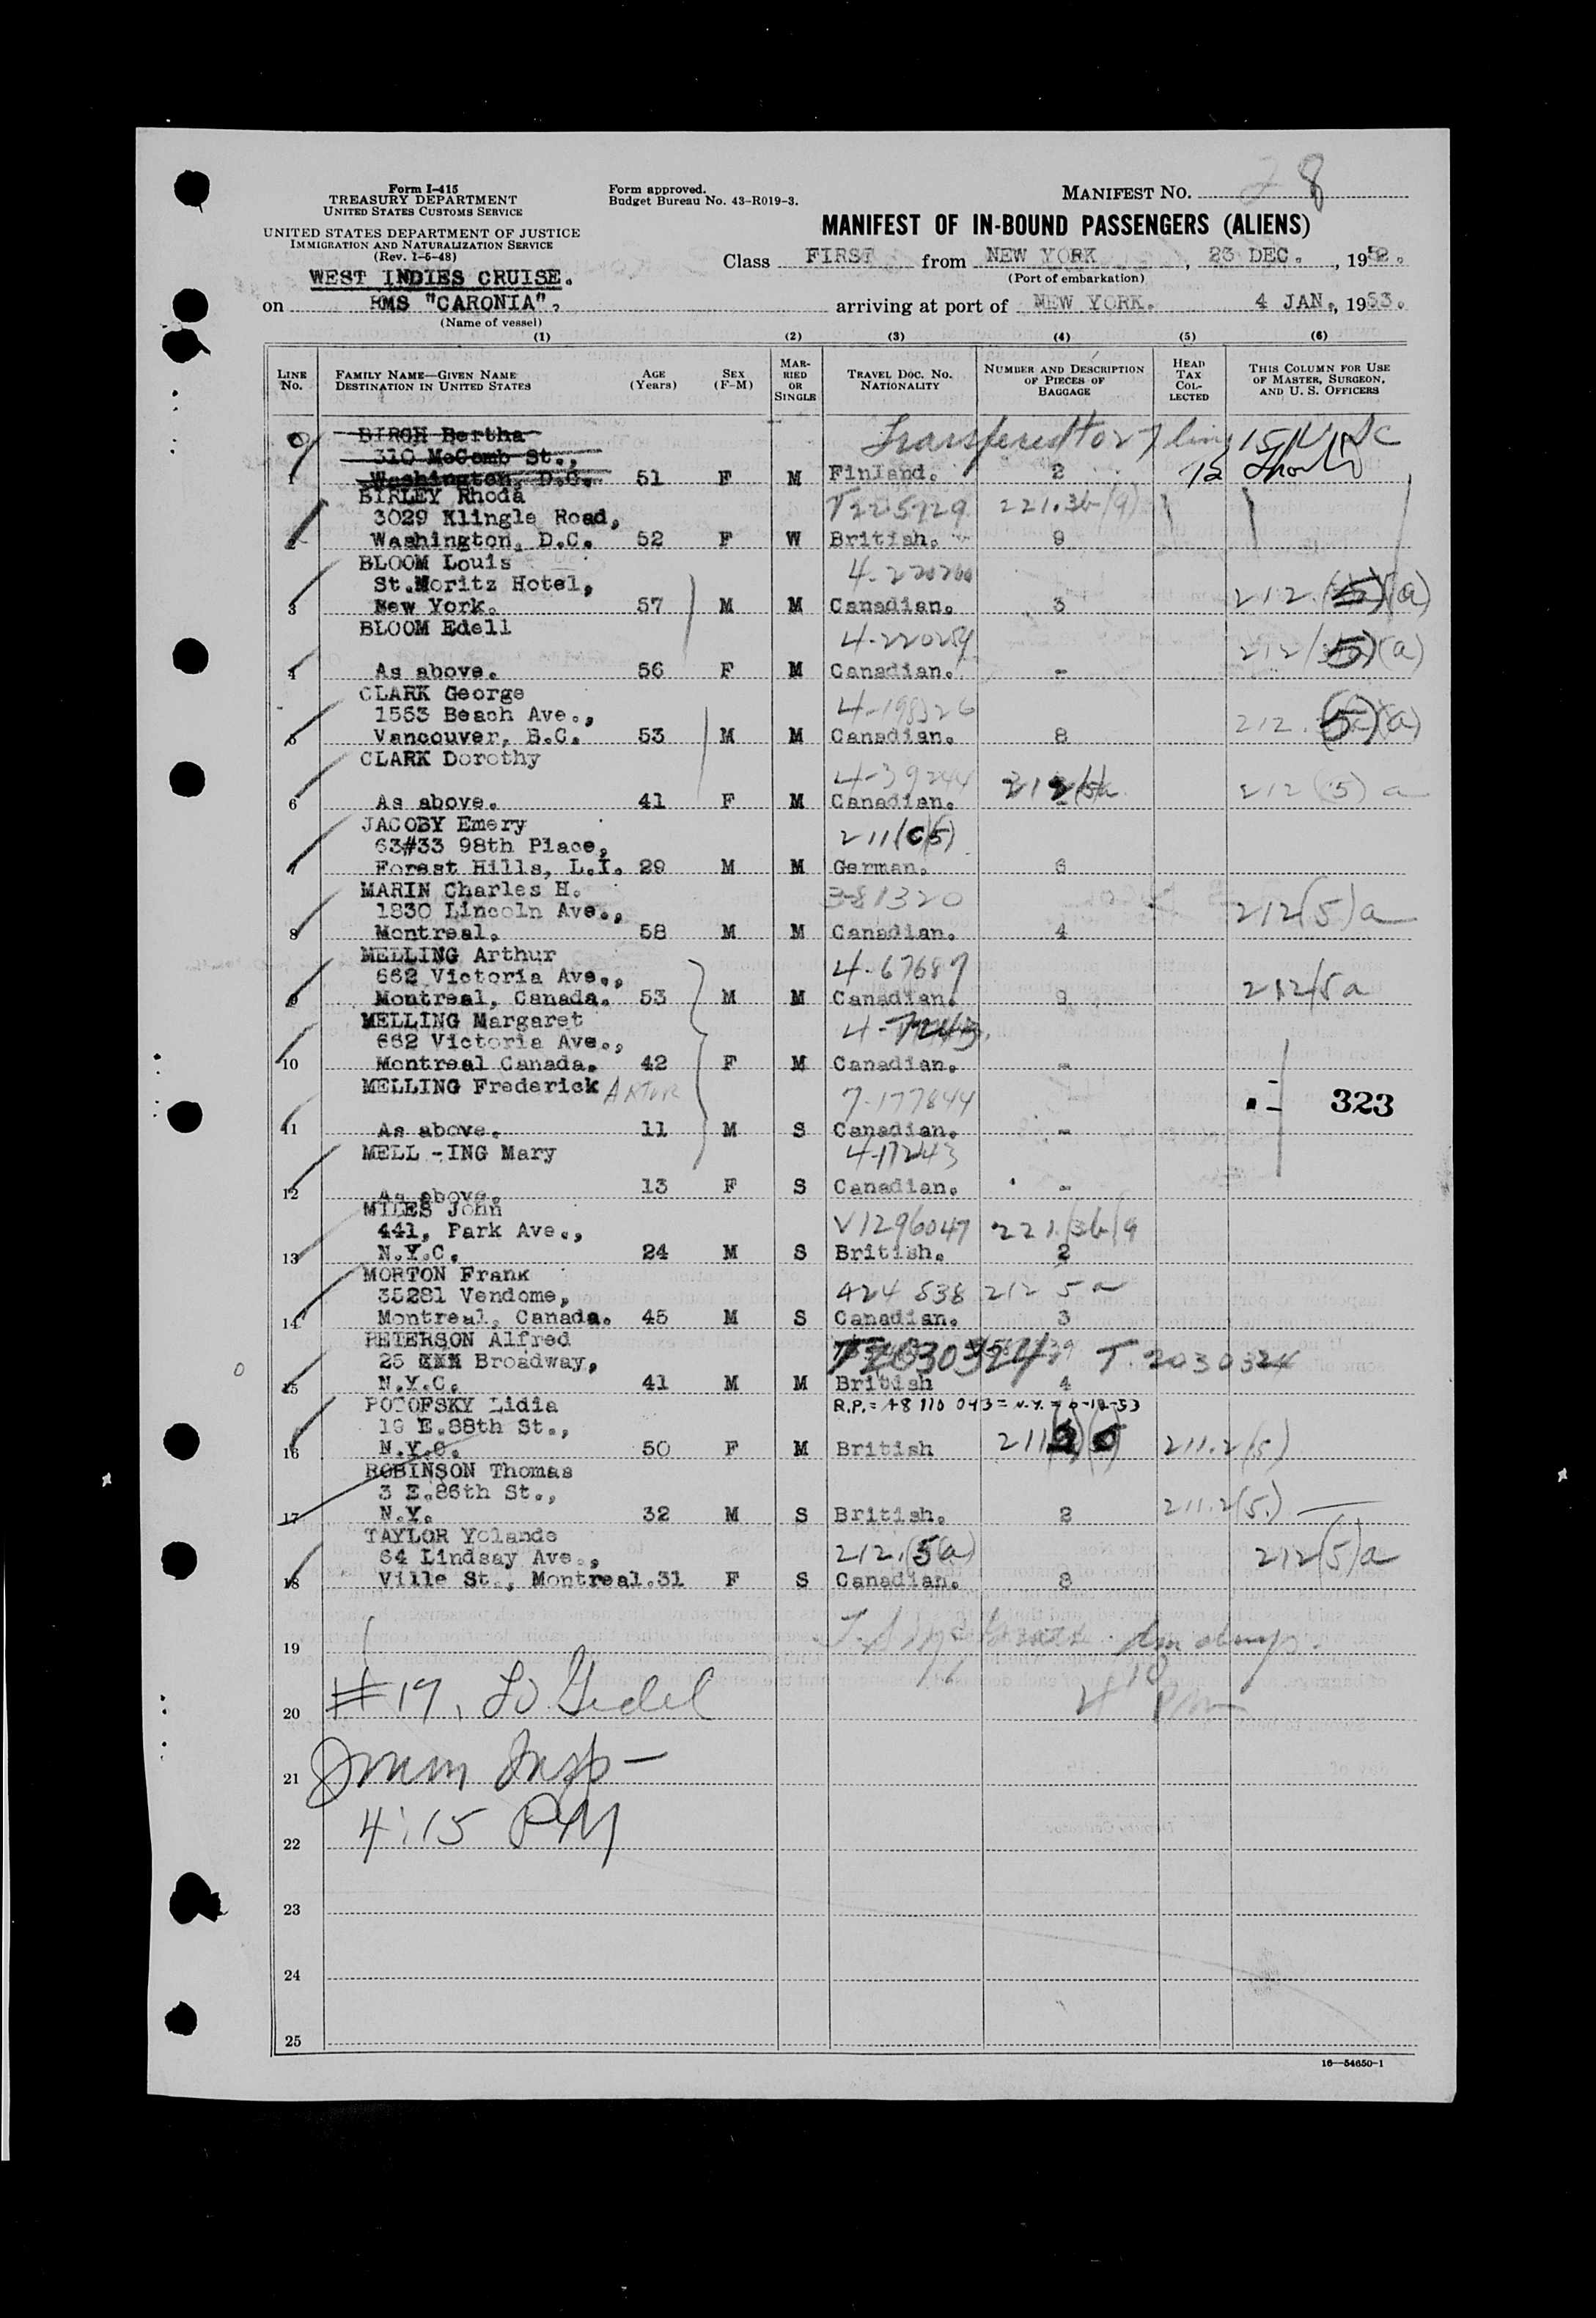 28
Form I-415
TREASURY DEPARTMENT
UNITED STATES CUSTOMS SERVICE
UNITED STATES DEPARTMENT OF JUSTICE
IMMIGRATION AND NATURALIZATION SERVICE
(Rev. 1-5-48)
Form approved.
Budget Bureau No. 43-R019-3.
MANIFEST NO.
MANIFEST OF IN-BOUND PASSENGERS (ALIENS)
WEST INDIES CRUISE.
Class FIRST from NEW YORK, 23 DEC., 1952.
(Port of embarkation)
on RMS "CARONIA", arriving at port of NEW YORK. 4 JAN., 1953.
(Name of vessel)
(1) (2) (3) (4) (5) (6)
LINE No. FAMILY NAME—GIVEN NAME DESTINATION IN UNITED STATES AGE (Years) SEX (F-M) MARRIED OR SINGLE TRAVEL DOC. NO. NATIONALITY NUMBER AND DESCRIPTION OF PIECES OF BAGGAGE HEAD TAX COLLECTED THIS COLUMN FOR USE OF MASTER, SURGEON, AND U. S. OFFICERS
BIRCH Bertha
310 McComb St.,
1 Washington, D.C. 51 F M Finland. 2
BIRLEY Rhoda
3029 Klingle Road, T225929 221.3b(9)
2 Washington, D.C. 52 F W British. 9
BLOOM Louis
St.Moritz Hotel,
3 New York. 57 M M Canadian. 3 212.(5)(a)
BLOOM Edell 4-22025
4 As above. 56 F M Canadian. - 212(5)(a)
CLARK George
1563 Beach Ave., 4-198326 212.(5)(a)
5 Vancouver, B.C. 53 M M Canadian. 8
CLARK Dorothy
4-39244 212(5)a 212(5) a
6 As above. 41 F M Canadian. -
JACOBY Emery
63#33 98th Place, 211(c5)
7 Forest Hills, L.I. 29 M M German. 6
MARIN Charles H. 3-81320
1830 Lincoln Ave., 212(5)a
8 Montreal. 58 M M Canadian. 4
MELLING Arthur
662 Victoria Ave., 4-67687
9 Montreal, Canada. 53 M M Canadian. 9 212/5a
MELLING Margaret
662 Victoria Ave., 4-7243
10 Montreal Canada. 42 F M Canadian. -
MELLING Frederick ARTUR 7-177844 323
11 As above. 11 M S Canadian. -
MELL -ING Mary 4-17243
12 As above. 13 F S Canadian. -
MILES John
441, Park Ave., V1296047 221/3b/9
13 N.Y.C. 24 M S British. 2
MORTON Frank
35281 Vendome, 424 538 212 5 a
14 Montreal, Canada. 45 M S Canadian. 3
PETERSON Alfred
25 XXX Broadway, T2030324 T 2030324
15 N.Y.C. 41 M M British 4
POTOFSKY Lidia R.P.= A8 110 043 = N.Y.
19 E.88th St.,
16 N.Y.C. 50 F M British 211.2(5)
ROBINSON Thomas
3 E.86th St., 211.2(5.)
17 N.Y. 32 M S British. 2
TAYLOR Yolande
64 Lindsay Ave., 212.(5(a) 212(5)a
18 Ville St., Montreal.31 F S Canadian. 8
19
20 #17.
21 Insp-
22 4:15 PM
23
24
25
16—54650-1